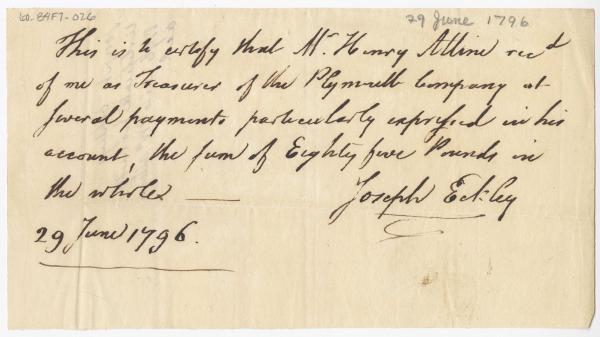 60-84F7-026
29 June 1796
This is to certify that Mr. Henry Alline recd
of me as Treasurer of the Plymouth Company at
several payments particularly expressed in his
account, the sum of Eighty five Pounds in
the whole
Joseph Eckley
29 June 1796.